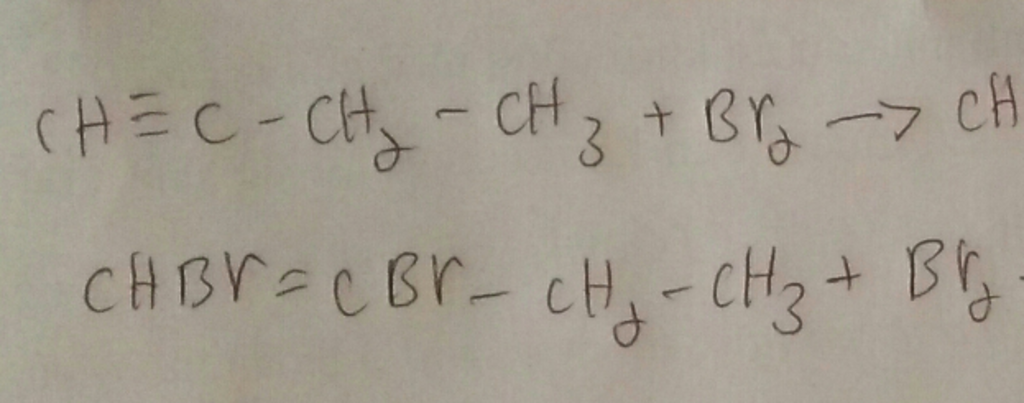 CH≡C-CH₂-CH₃+Br₂→CH
CHBr=CBr-CH₂-CH₃+Br₂